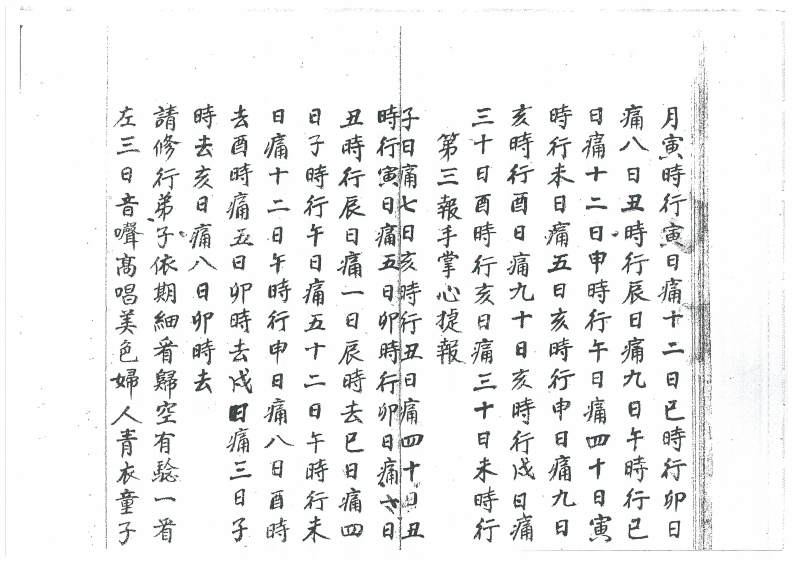 月寅時行寅日痛十二日巳時行卯日
痛八日丑時行辰日痛九日午時行巳
日痛十二日申時行午日痛四十日寅
時行未日痛五日亥時行申日痛九日
亥時行酉日痛九十日亥時行戌日痛
三十日酉時行亥日痛三十日未時行
第三報手掌心捷報
子日痛七日亥時行丑日痛四十日丑
時行寅日痛五日卯時行卯日痛六日
丑時行辰日痛一日辰時去巳日痛四
日子時行午日痛五十二日午時行未
日痛十二日午時行申日痛八日酉時
去酉時痛五日卯時去戌日痛三日子
時去亥日痛八日卯時去
請修行弟子依期細看歸空有驗一看
左三日音響高唱美色婦人青衣童子